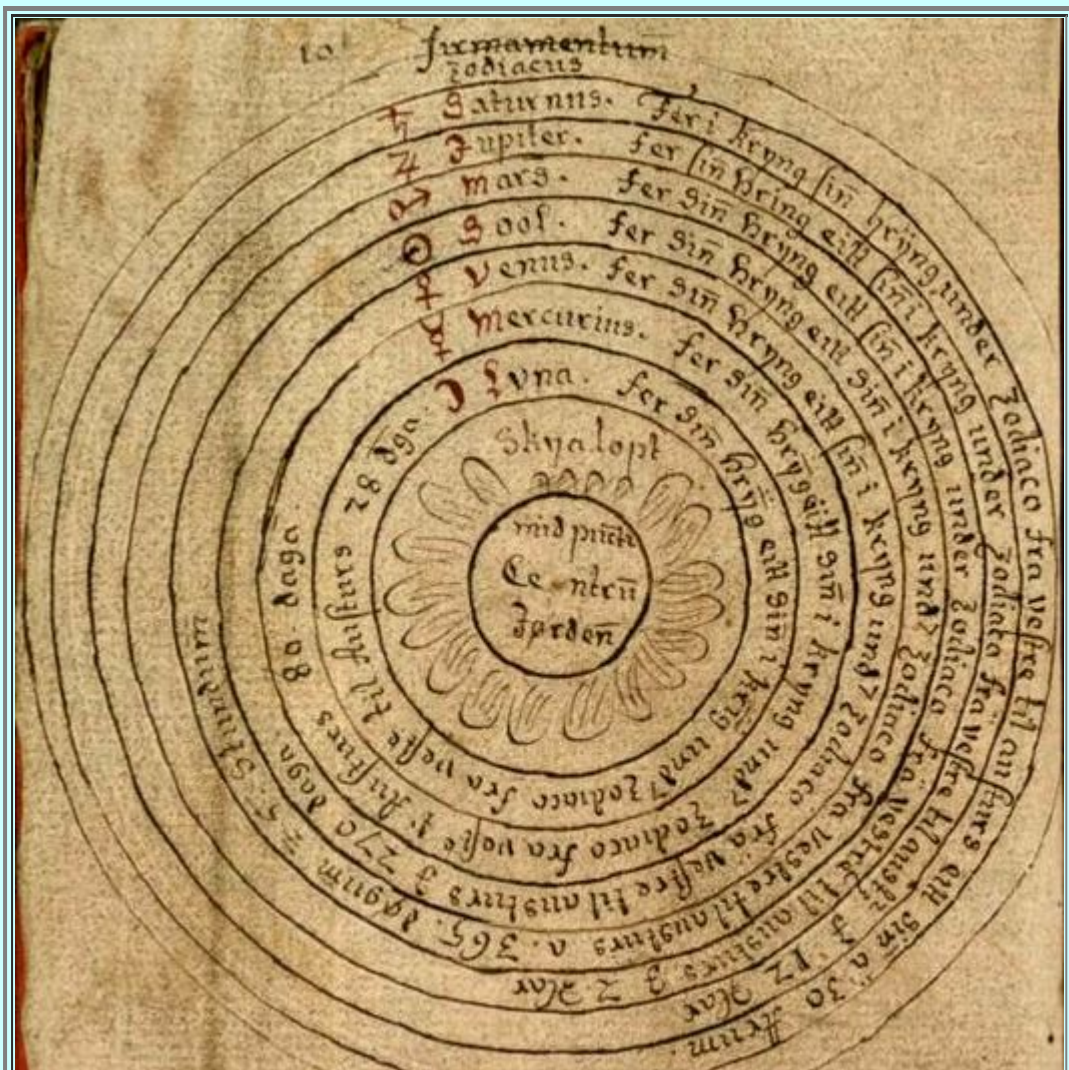 10
firmamentum̄
Zodiacus
♄ Saturnus. Fer i kryng sin̄ hrÿng under Zodiaco fra vestre til austurs eitt Sin̄ a 30 Arum.
♃ Jupiter. fer sin̄ hring eitt sin̄ i kryng under Zodiaco fra vestre til austr 3 12 Aar
♂ Mars. fer Sin̄ hrÿng eitt sin̄ i kryng under Zodiaco fra vestre til austurs 3 2 Aar
☉ Sool. fer Sin̄ hryng eitt Sin̄ i kryng und Zodiaco fra vestre til austurs a. 365. dagum z 5 Stundum̄
♀ Venus. fer Sin̄ hryng eitt sin̄ i kryng und Zodiaco fra vestre til austurs 3 270 daga.
☿ Mercurius. fer Sin̄ hrÿg eitt Sin̄ i kryng und Zodiaco fra veste Austurs 80. daga.
☾ Luna. fer Sin̄ hrÿg eitt Sin i krīg und Zodiaco fra veste til Austurs 28 dga.
Skya.lopt
mid pūcti
Centrū
Jørden̄